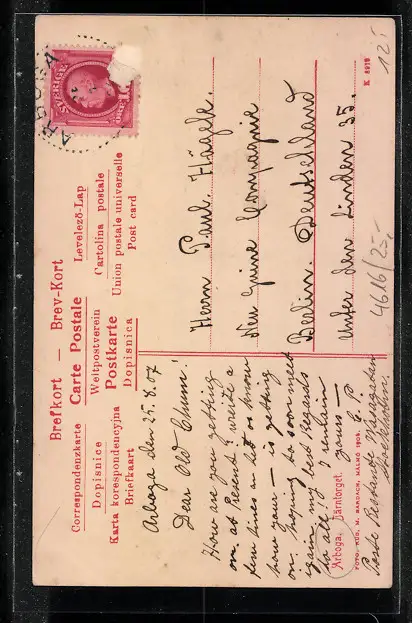 Brefkort — Brev-Kort
Correspondenzkarte Carte Postale Levelező-Lap
Dopisnice Weltpostverein Cartolina postale
Karta korespondencyjna Postkarte Union postale universelle
Briefkaart Dopisnica Post card
ARBOGA
SVERIGE
ÖRE 10
Arboga den 25.8.07
Dear Old Chum!
How are you getting
on. at Present? write a
few lines a lot os know
how your is getting
on. hoping to soon meet
again, my best regards
to all I remain
yours —
E. P.
Poste Restante
Stockholm.
Herrn Paul. Hägele.
Neu Guine Compagnie
Berlin. Deutschland
Unter den Linden 35.
Arboga. Järntorget.
FOTO. RUD. M. BARASCH, MALMÖ 1904.
K 8919
125
4616/25,-